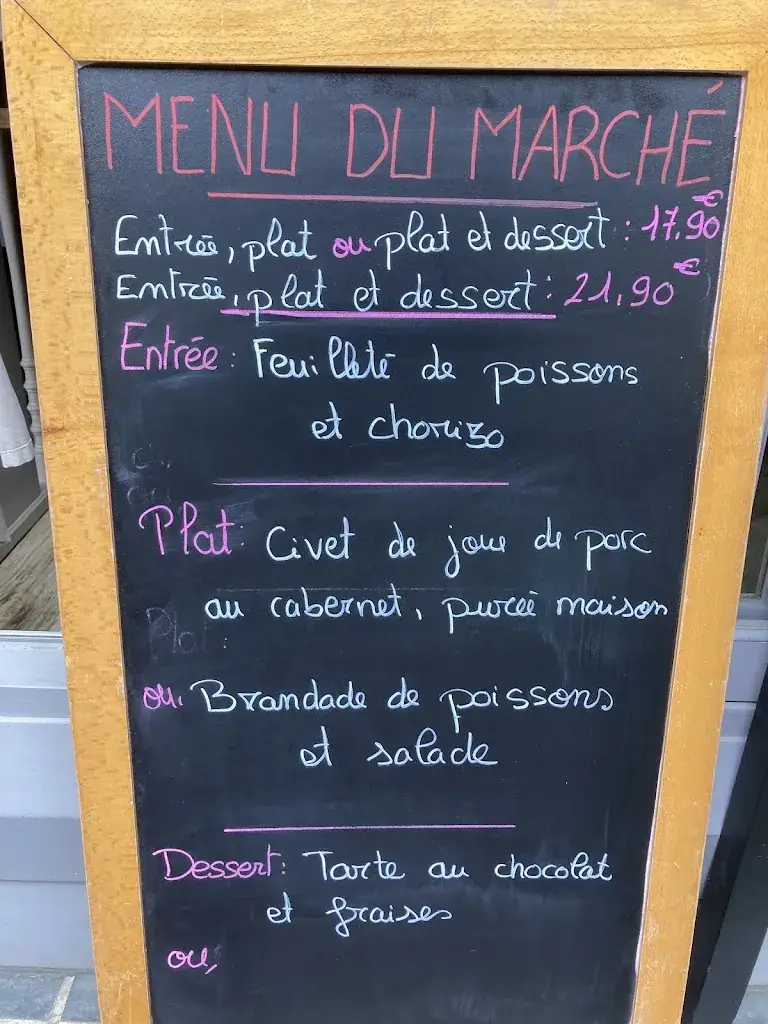 MENU DU MARCHÉ
Entrée, plat ou plat et dessert : 17.90€
Entrée, plat et dessert : 21,90€
Entrée : Feuilleté de poissons
et chorizo
Plat : Civet de joue de porc
au cabernet, purée maison
ou, Brandade de poissons
et salade
Dessert : Tarte au chocolat
et fraises
ou,